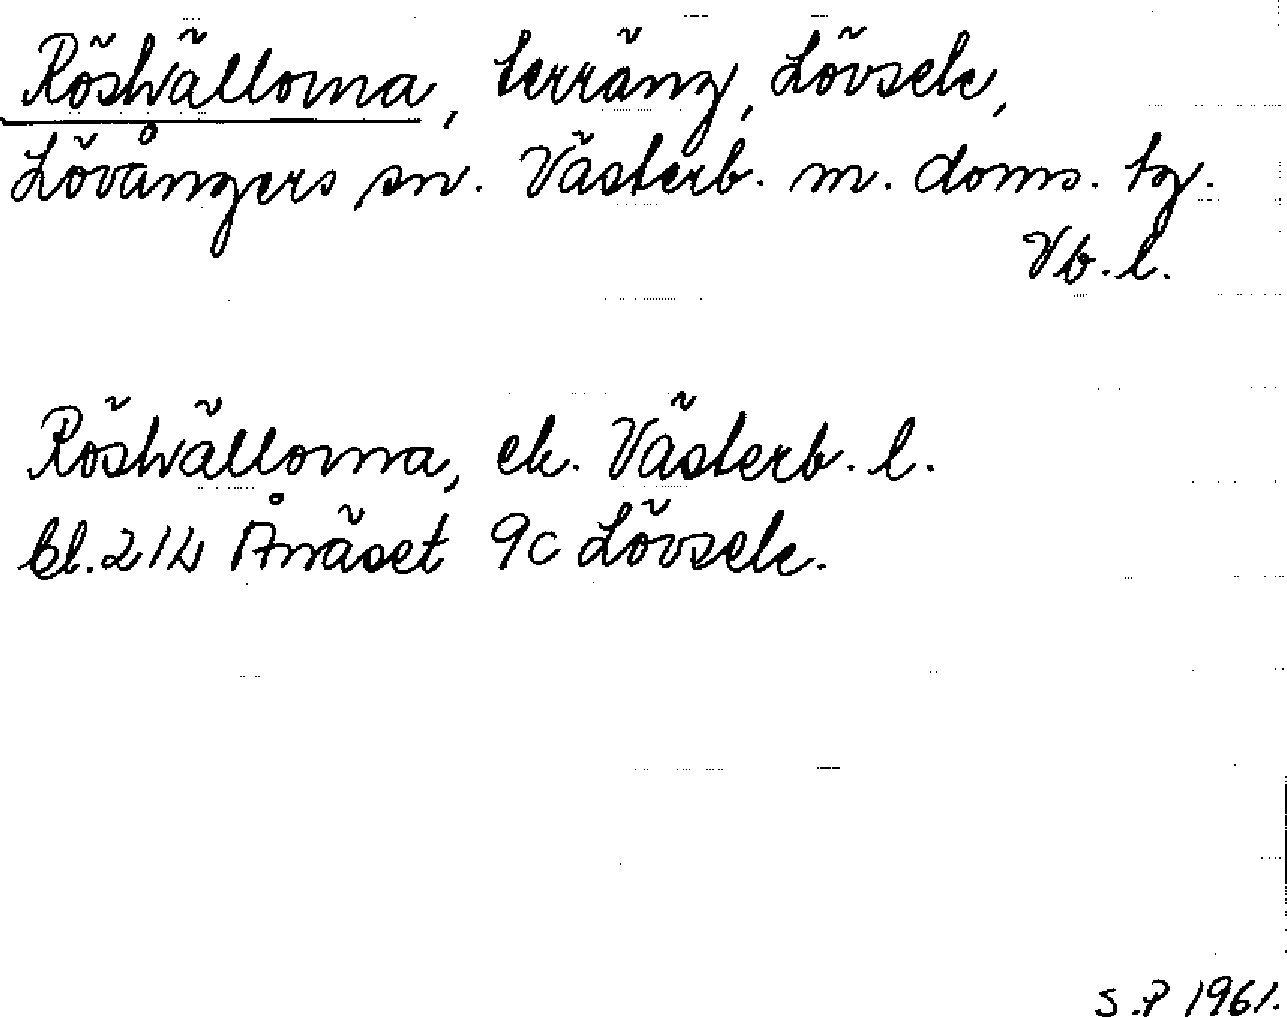 Röskvällorna, terräng, Lövsele,
Lövångers sn. Västerb. m. doms. tg.
Vb. l.
Röskvällorna, ek. Västerb. l.
bl. 21L Ånäset 9c Lövsele.
S.P 1961.